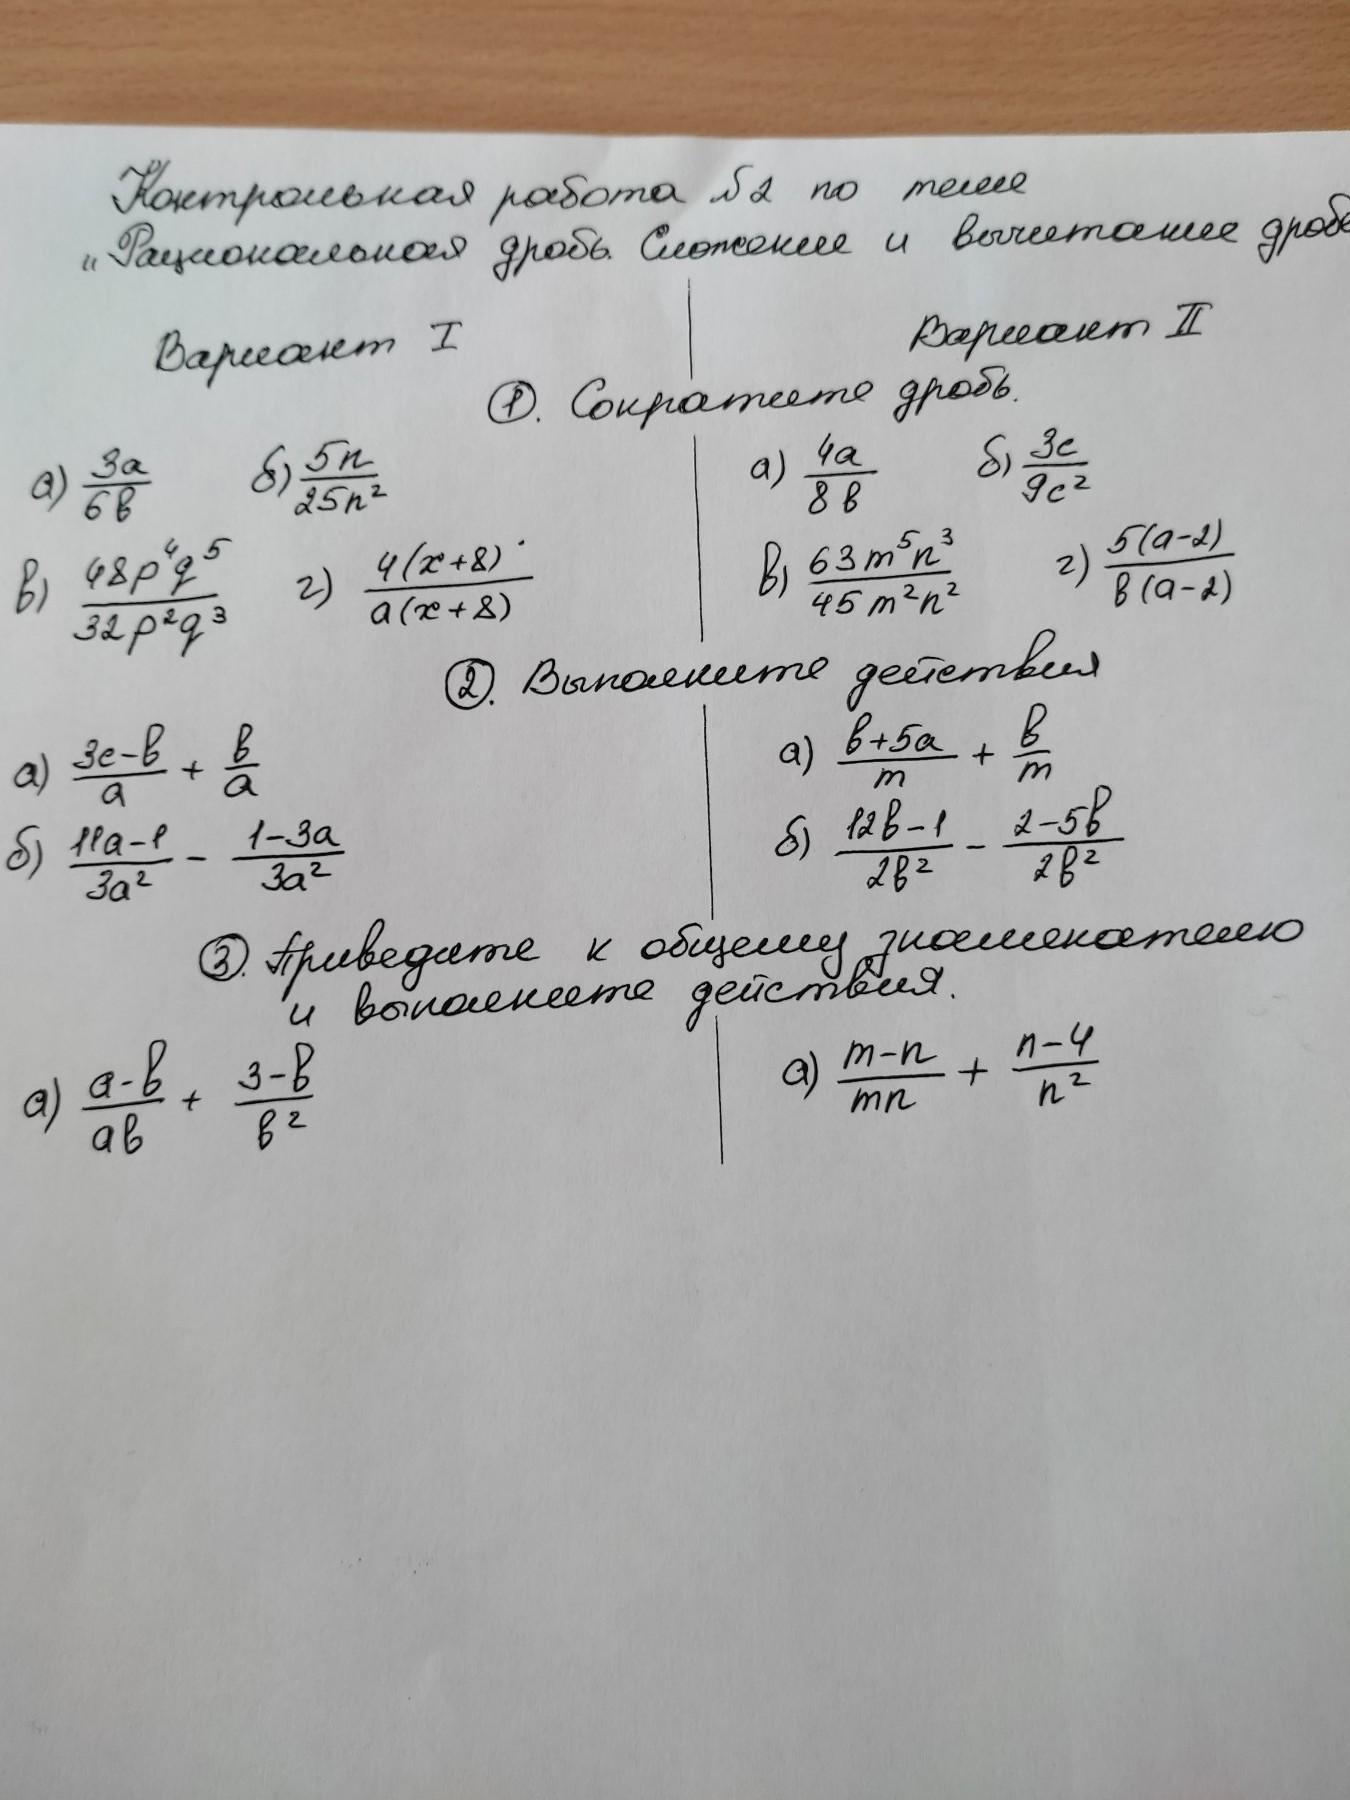 Контрольная работа №2 по теме
„Рациональная дробь. Сложение и вычитание дробе
Вариант I
Вариант II
①. Сократите дробь.
а) 3a/6b б) 5n/25n² а) 4a/8b б) 3c/9c²
в) 48p⁴q⁵/32p²q³ г) 4(x+8)/a(x+8) в) 63m⁵n³/45m²n² г) 5(a-2)/b(a-2)
②. Выполните действия
а) 3c-b/a + b/a а) b+5a/m + b/m
б) 11a-1/3a² - 1-3a/3a² б) 12b-1/2b² - 2-5b/2b²
③. Приведите к общему знаменателю
и выполните действия.
а) a-b/ab + 3-b/b² а) m-n/mn + n-4/n²